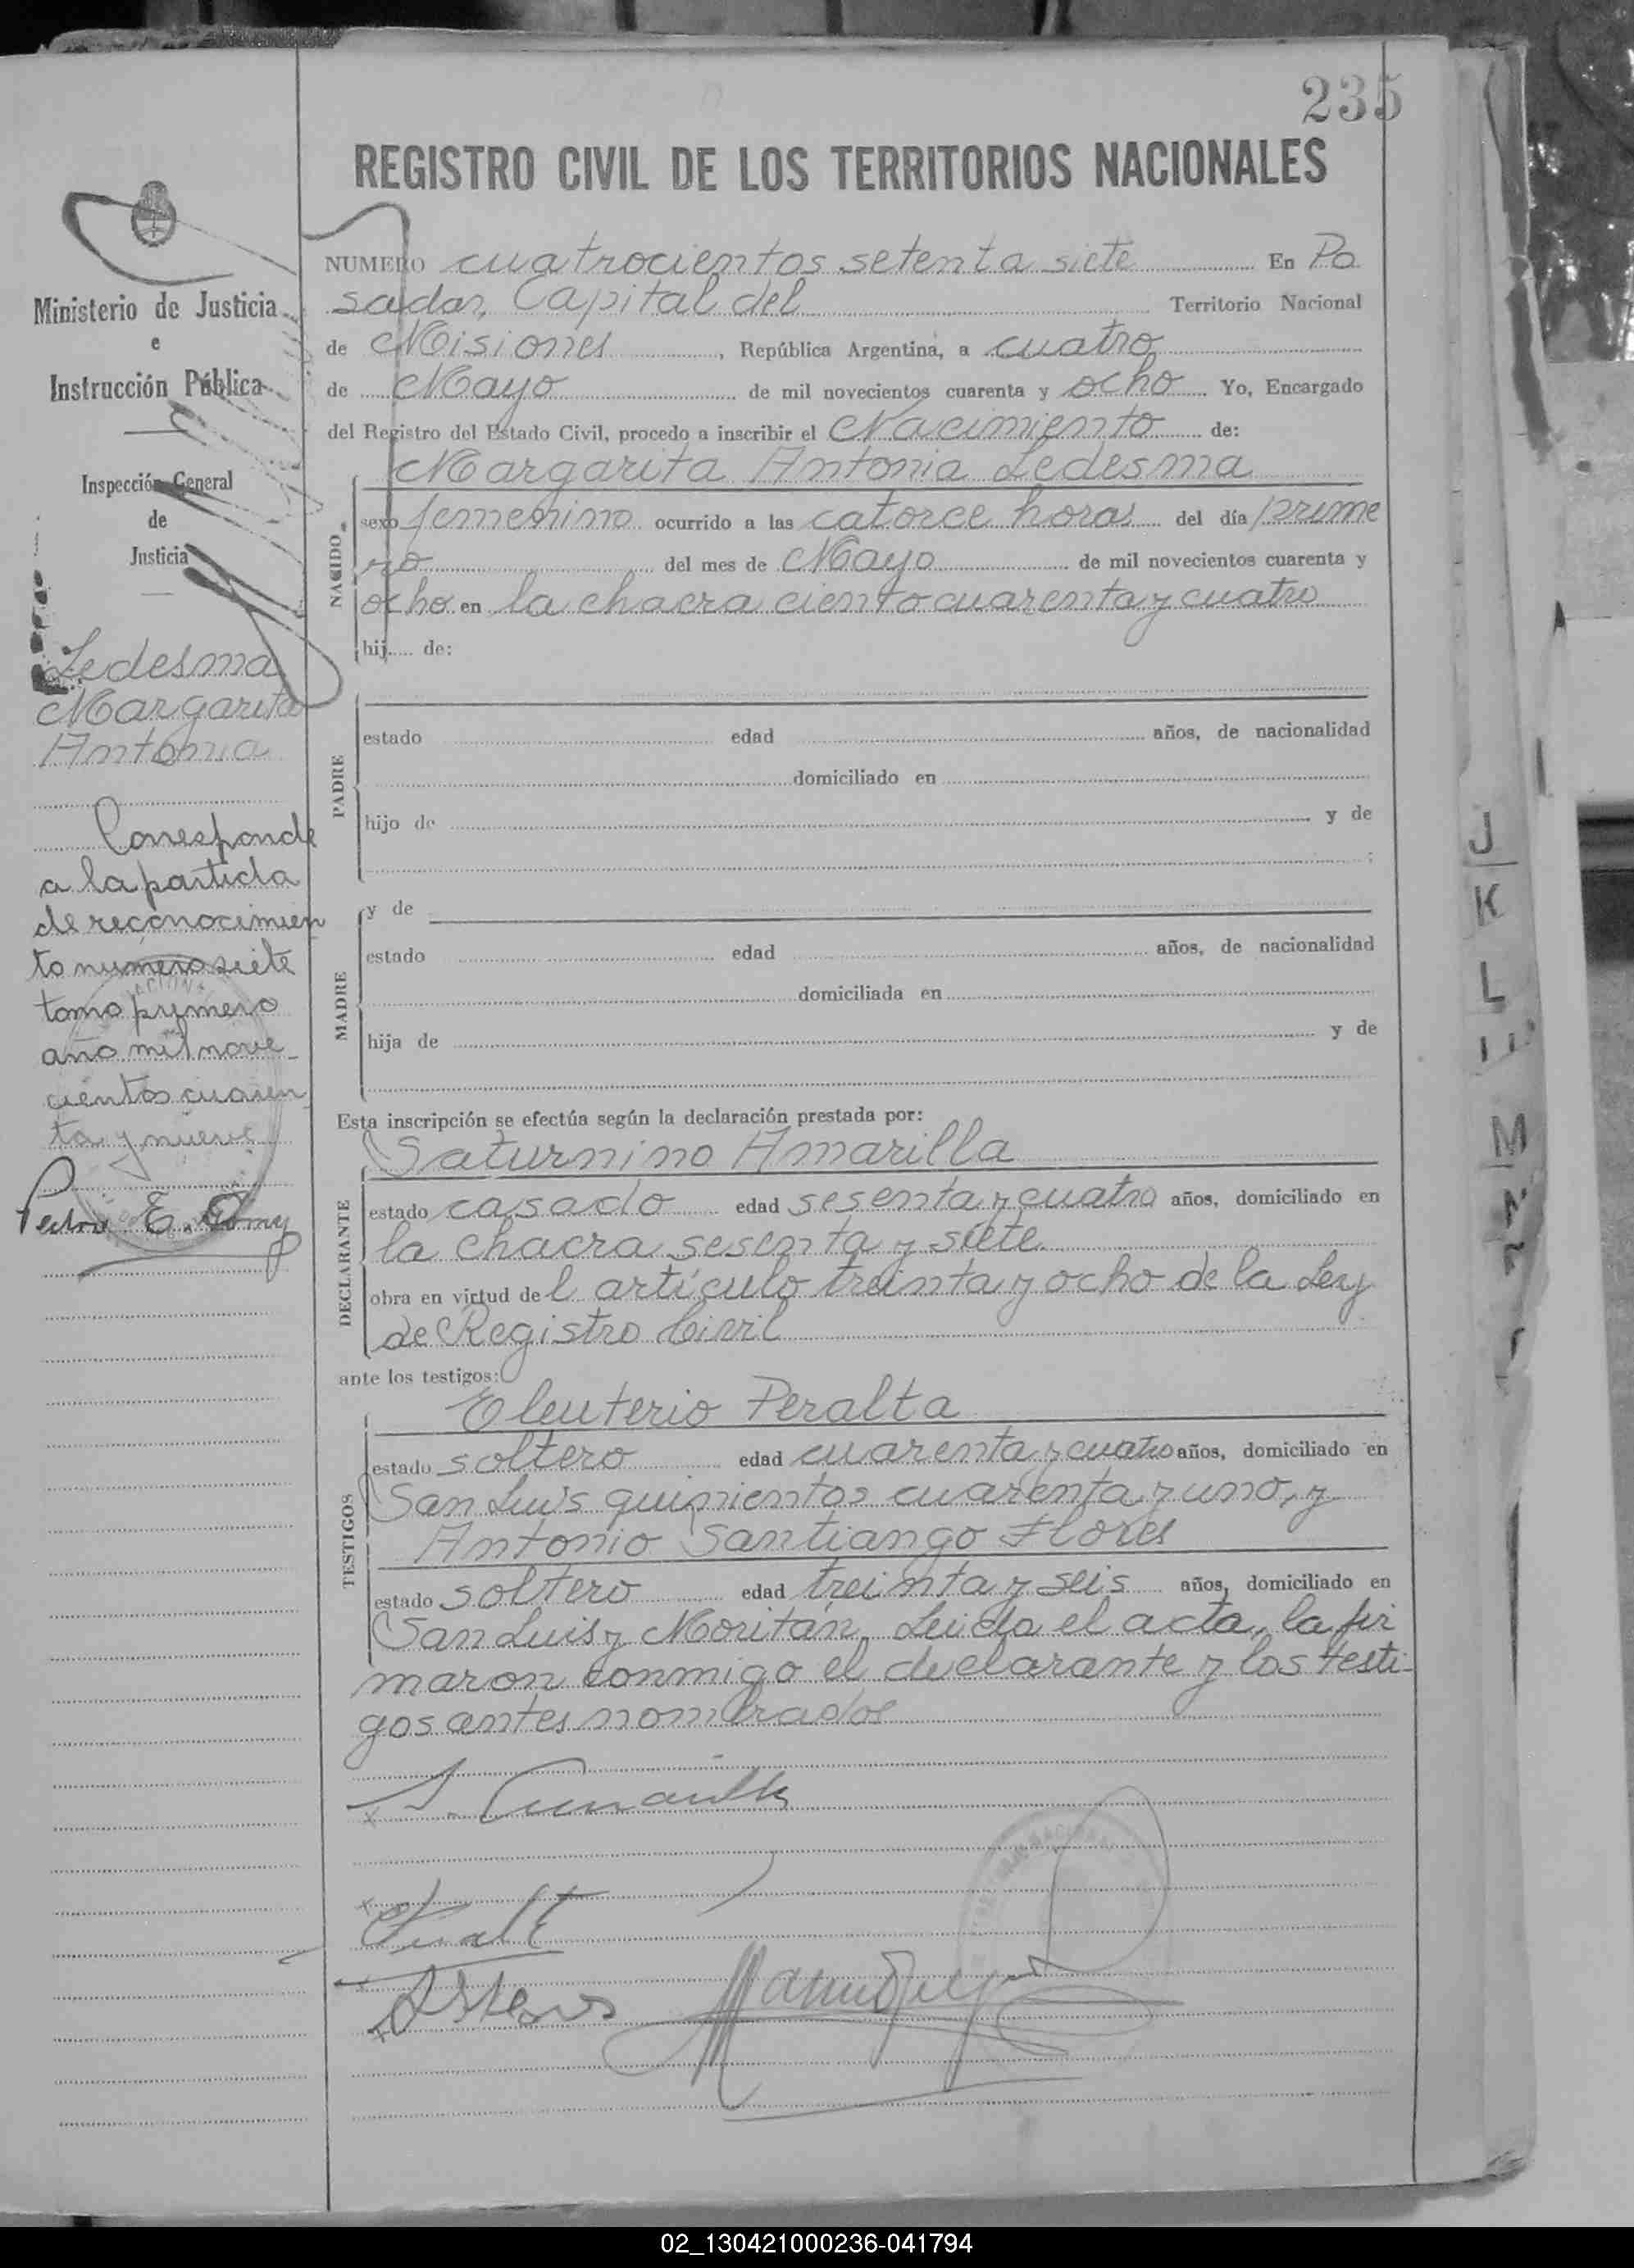 235
REGISTRO CIVIL DE LOS TERRITORIOS NACIONALES
NUMERO cuatrocientos setenta siete En Po
sadas, Capital del Territorio Nacional
de Misiones, República Argentina, a cuatro
de Mayo de mil novecientos cuarenta y ocho Yo, Encargado
del Registro del Estado Civil, procedo a inscribir el Nacimiento de:
Margarita Antonia Ledesma
NACIDO
sexo femenino ocurrido a las catorce horas del día prime
ro del mes de Mayo de mil novecientos cuarenta y
ocho en la chacra ciento cuarenta y cuatro
hij de:
PADRE
estado edad años, de nacionalidad
domiciliado en
hijo de y de
y de
MADRE
estado edad años, de nacionalidad
domiciliada en
hija de y de
Esta inscripción se efectúa según la declaración prestada por:
Saturnino Amarilla
DECLARANTE
estado casado edad sesenta y cuatro años, domiciliado en
la chacra sesenta y siete
obra en virtud del artículo treinta y ocho de la Ley
de Registro Civil
ante los testigos:
Eleuterio Peralta
TESTIGOS
estado soltero edad cuarenta y cuatro años, domiciliado en
San Luis quinientos cuarenta y uno, y
Antonio Santiango Flores
estado soltero edad treinta y seis años, domiciliado en
San Luis y Moritán. Leida el acta, la fir
maron conmigo el declarante y los testi-
gos antes nombrados
Ministerio de Justicia
e
Instrucción Pública
Inspección General
de
Justicia
Ledesma
Margarita
Antonia
Corresponde
a la partida
de reconocimien
to numero siete
tomo primero
año mil nove-
cientos cuaren
ta y nueve
J
K
L
M
N
02_130421000236-041794